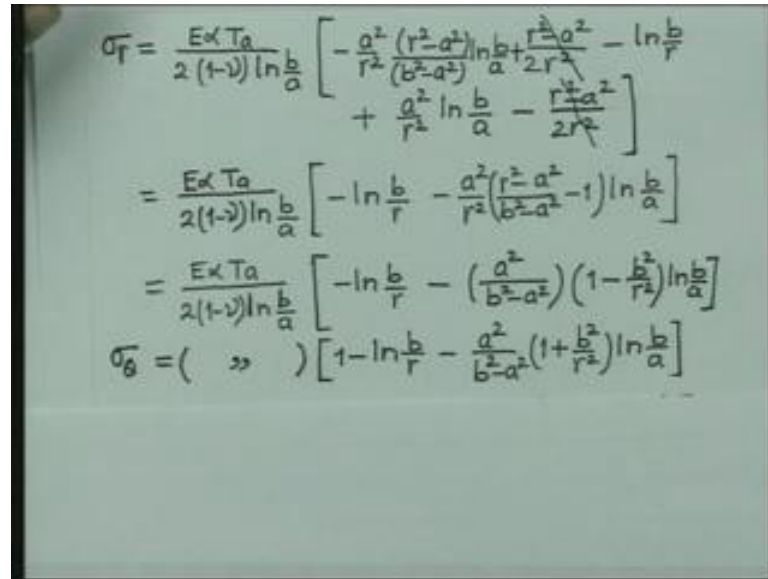 σr = EαTa / 2(1-ν) ln b/a [ - a²/r² (r²-a²)/(b²-a²) ln b/a + r²-a²/2r² - ln b/r
+ a²/r² ln b/a - r²-a²/2r² ]
= EαTa / 2(1-ν) ln b/a [ -ln b/r - a²/r² ( r²-a²/b²-a² - 1 ) ln b/a ]
= EαTa / 2(1-ν) ln b/a [ -ln b/r - ( a²/b²-a² ) ( 1 - b²/r² ) ln b/a ]
σθ = ( ,, ) [ 1 - ln b/r - a²/b²-a² ( 1 + b²/r² ) ln b/a ]